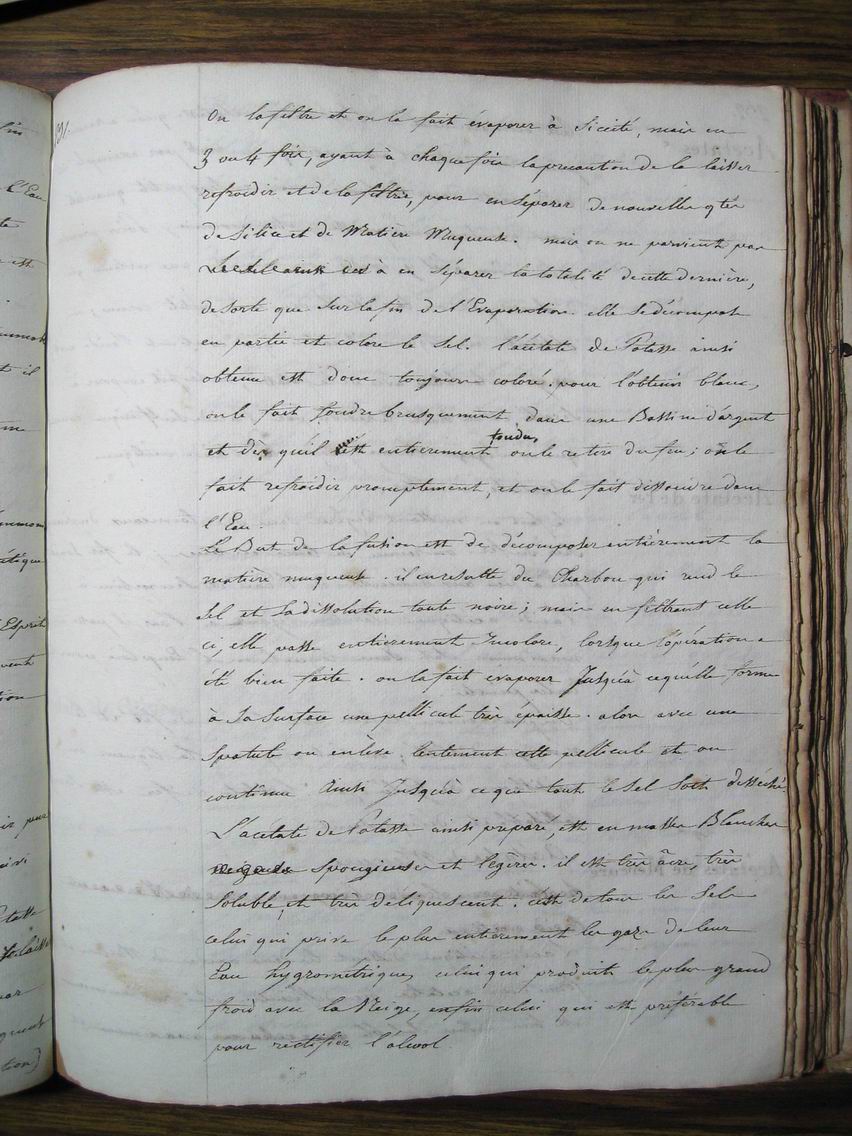 191.
On la filtre et on la fait évaporer à siccité, mais en
3 ou 4 fois, ayant à chaque fois la precaution de la laisser
refroidir et de la filtrer, pour en séparer de nouvelles qtés
de Silice et de Matière Muqueuse. mais on ne parvient pas
à en séparer la totalité de cette dernière,
de sorte que sur la fin de l'Evaporation elle se décompose
en partie et colore le sel. l'acétate de Potasse ainsi
obtenu est donc toujours coloré. pour l'obtenir blanc,
on le fait fondre brusquement dans une Bassine d'argent
et dès qu'il est entierement fondu, on le retire du feu; on le
fait refroidir promptement, et on le fait dissoudre dans
l'Eau.
Le But de la fusion est de décomposer entièrement la
matière muqueuse. il en resulte du Charbon qui rend le
Sel et sa dissolution toute noire; mais en filtrant celle
ci, elle passe entierement Incolore, lorsque l'opération a
été bien faite. on la fait evaporer Jusqu'à ce qu'elle forme
à sa surface une pellicule très épaisse. alors avec une
Spatule on enlève, lentement cette pellicule et on
continue ainsi Jusqu'à ce que tout le sel soit désséché
L'acétate de Potasse ainsi preparé, est en masses Blanches
spongieuses et légères. il est très âcre, très
Soluble, et très deliquescent. c'est de tous les Sels
celui qui prive le plus entierement les gaz de leur
Eau hygrométrique, celui qui produit le plus grand
froid avec la Neige, enfin celui qui est préférable
pour rectifier l'alcool.